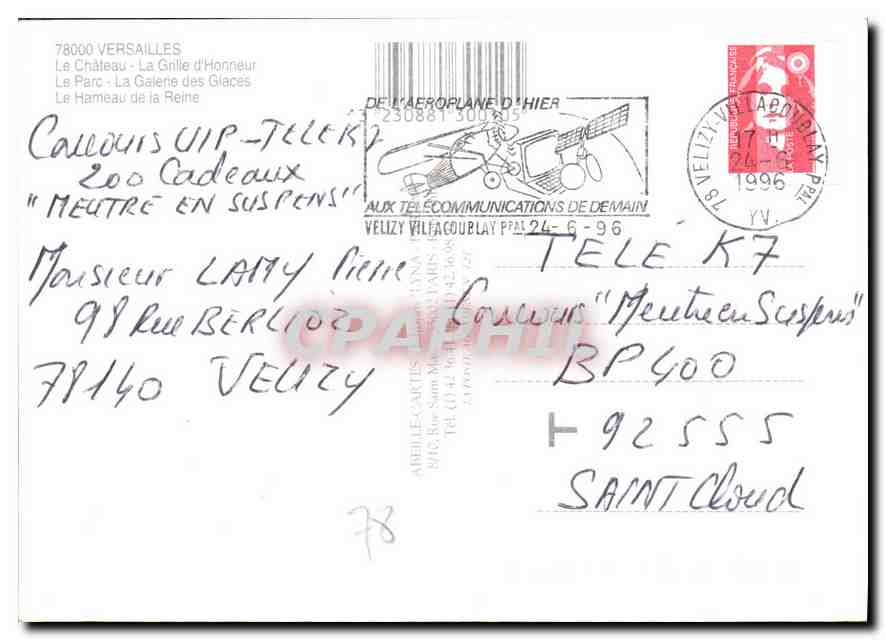 78000 VERSAILLES
Le Château - La Grille d'Honneur
Le Parc - La Galerie des Glaces
Le Hameau de la Reine
Concours VIP - TELE K7
200 Cadeaux
"MEUTRE EN SUSPENS"
Monsieur LAMY Pierre
98 Rue BERLIOZ
78140 VELIZY
78
DE L'AEROPLANE D'HIER
3 230881 300305
AUX TELECOMMUNICATIONS DE DEMAIN
VELIZY VILLACOUBLAY PPAL 24-6-96
REPUBLIQUE FRANÇAISE
LA POSTE
78 VELIZY-VILLACOUBLAY PPAL
24-6
1996
YV.
TELE K7
Concours "Meutre en Suspens"
BP 400
T 92555
SAINT Cloud
ABEILLE-CARTES
8/10, Rue Saint-Marc
PARIS
CPAPHIL